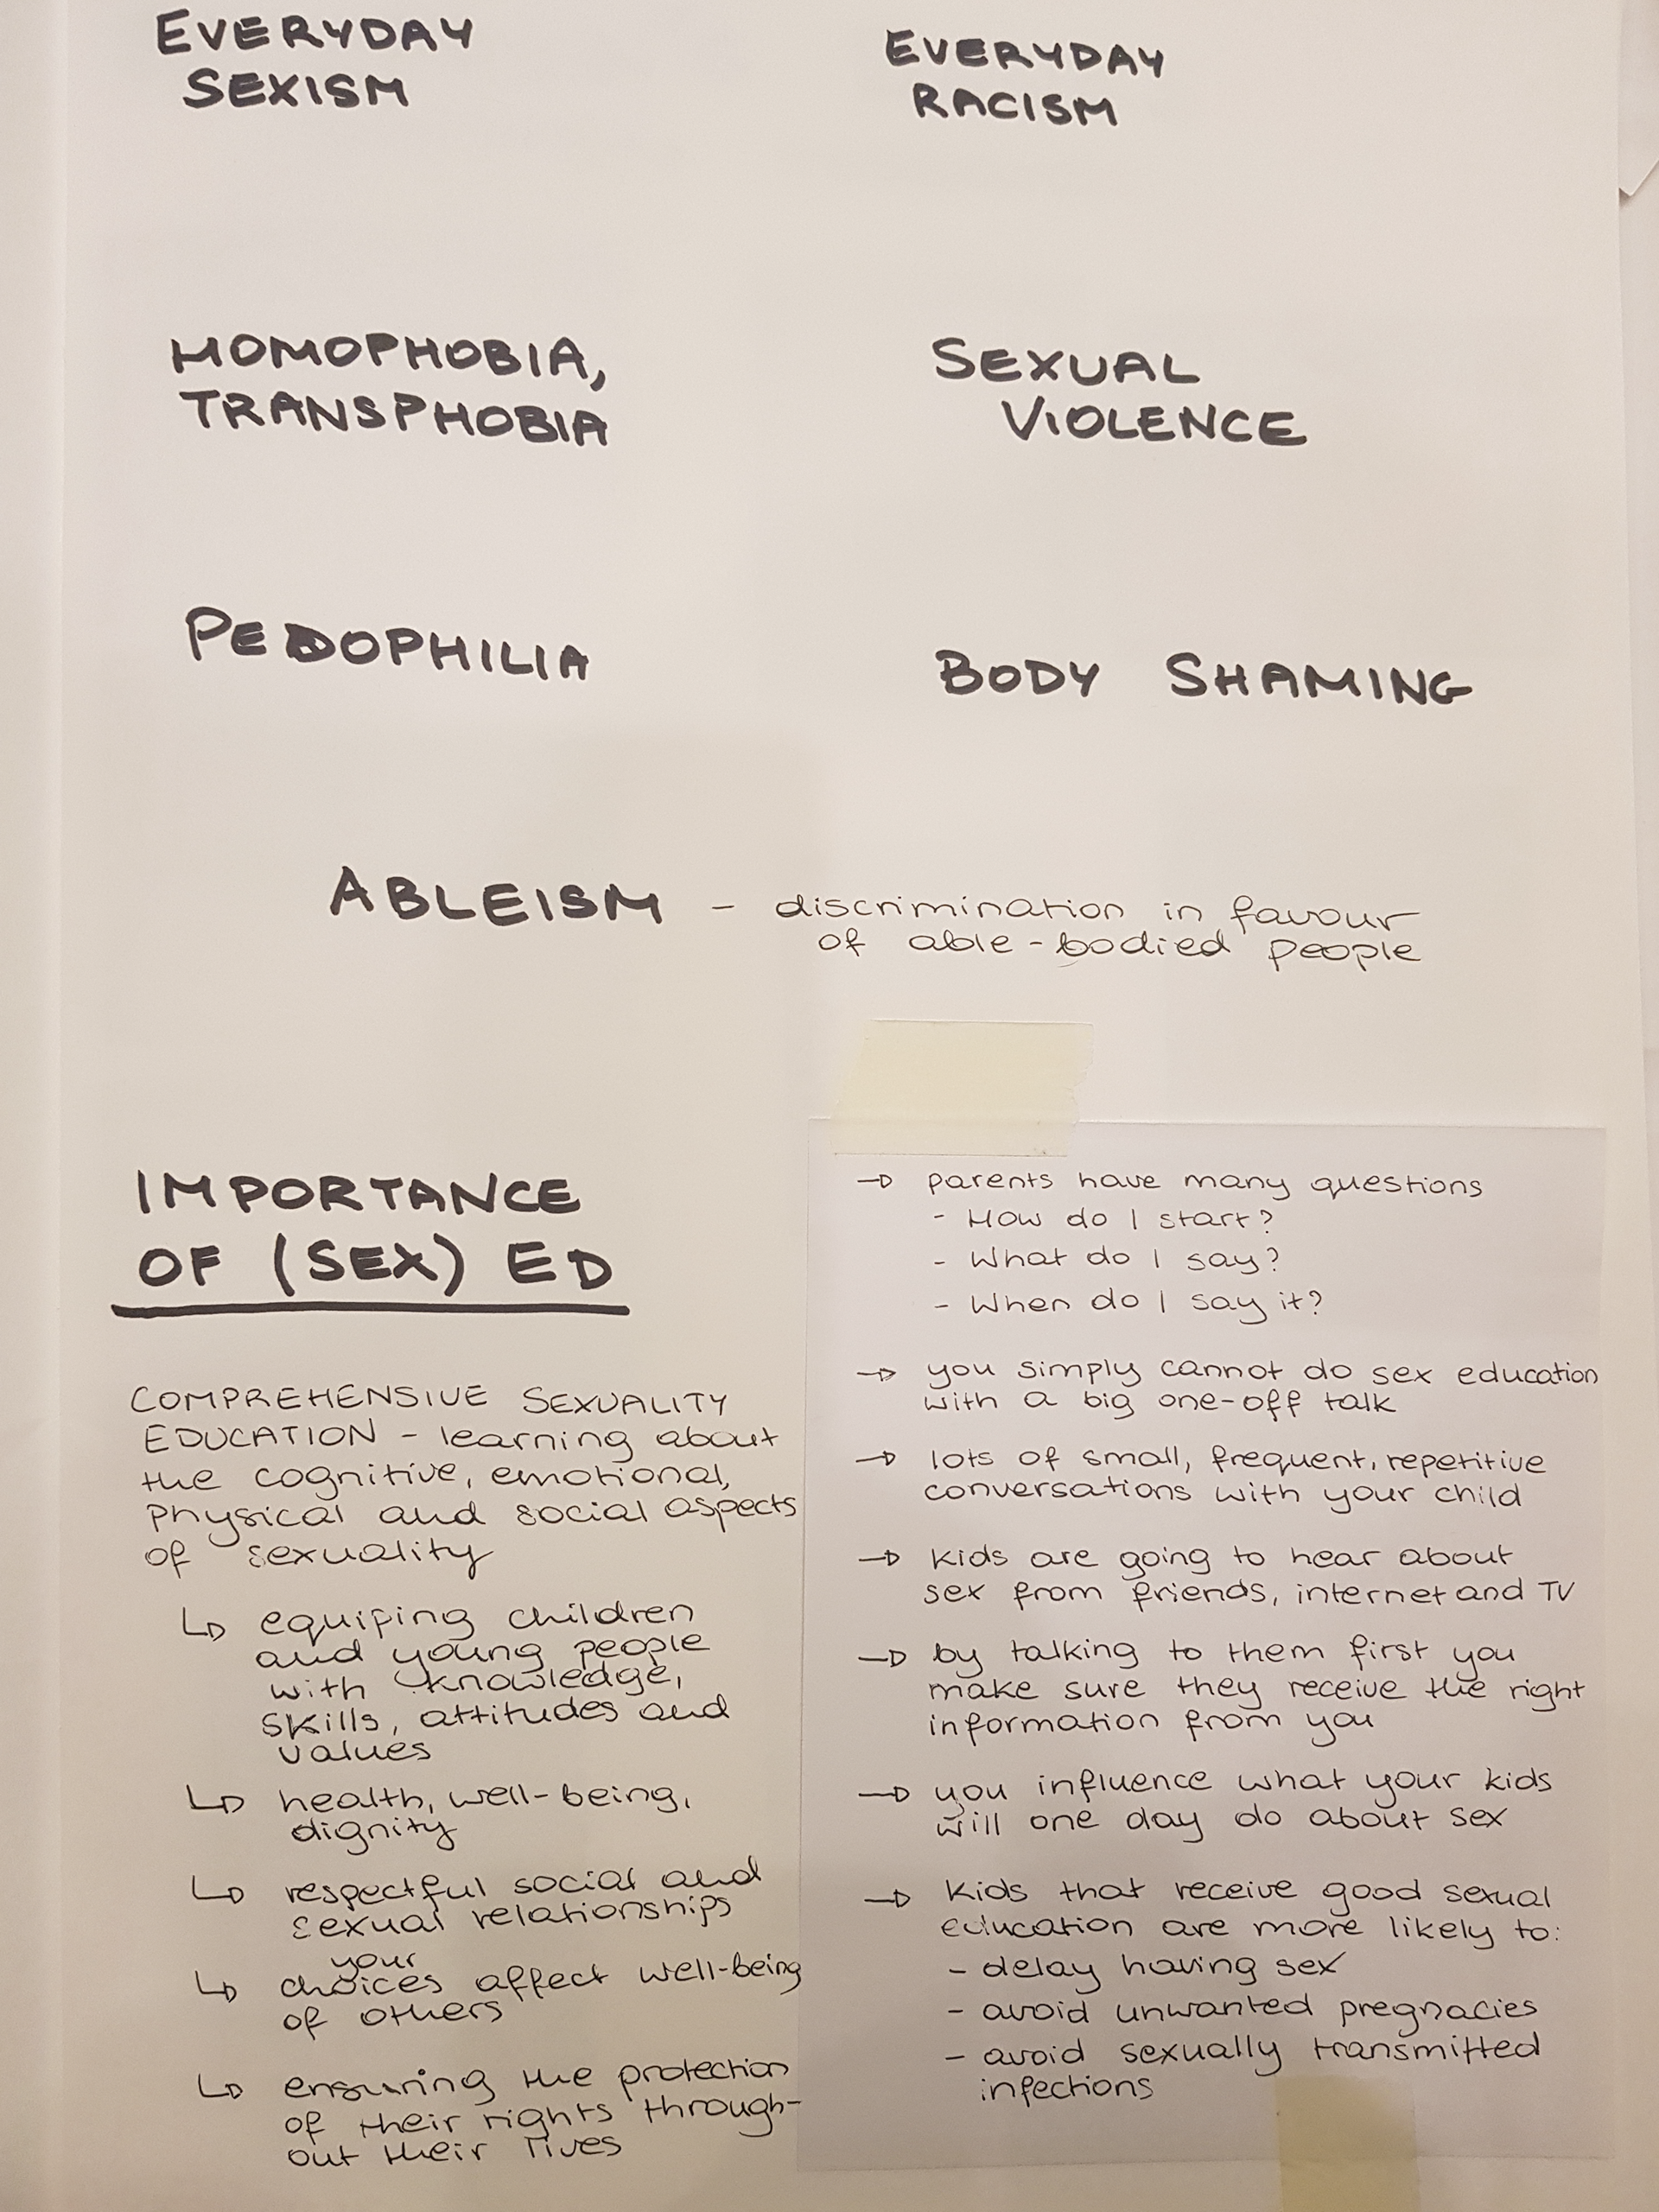 EVERYDAY
SEXISM
EVERYDAY
RACISM
HOMOPHOBIA,
TRANSPHOBIA
SEXUAL
VIOLENCE
PEDOPHILIA
BODY SHAMING
ABLEISM - discrimination in favour
of able-bodied people
IMPORTANCE
OF (SEX) ED
COMPREHENSIVE SEXUALITY
EDUCATION - learning about
the cognitive, emotional,
physical and social aspects
of sexuality
↳ equiping children
and young people
with knowledge,
skills, attitudes and
values
↳ health, well-being,
dignity
↳ respectful social and
sexual relationships
your
↳ choices affect well-being
of others
↳ ensuring the protection
of their rights through-
out their lives
→ parents have many questions
- How do I start?
- What do I say?
- When do I say it?
→ you simply cannot do sex education
with a big one-off talk
→ lots of small, frequent, repetitive
conversations with your child
→ kids are going to hear about
sex from friends, internet and TV
→ by talking to them first you
make sure they receive the right
information from you
→ you influence what your kids
will one day do about sex
→ kids that receive good sexual
education are more likely to:
- delay having sex
- avoid unwanted pregnacies
- avoid sexually transmitted
infections